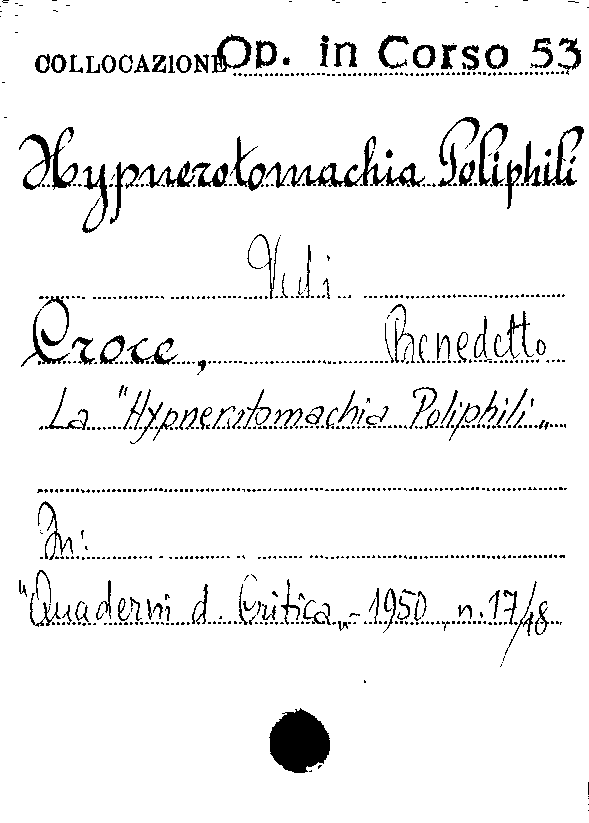 COLLOCAZIONE Op. in Corso 53
Hypnerotomachia Poliphili
Vedi
Croce, Benedetto
La "Hypnerotomachia Poliphili„
In:
"Quaderni d. Critica„ - 1950, n. 17/18